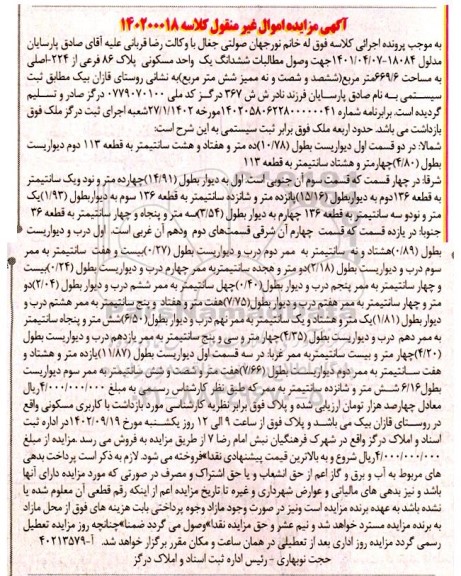 آگهی مزایده اموال غیر منقول کلاسه ۱۴۰۲۰۰۰۱۸
به موجب پرونده اجرائی کلاسه فوق له خانم نورجهان صولتی جغال با وکالت رضا قربانی علیه آقای صادق پارسایان
مدلول ۱۸۰۸۴-۱۴۰۱/۰۴/۰۷ جهت وصول مطالبات ششدانگ یک واحد مسکونی پلاک ۸۶ فرعی از ۲۲۴-اصلی
به مساحت ۶۶۹/۶متر مربع(ششصد و شصت و نه ممیز شش متر مربع)به نشانی روستای قازان بیک مطابق ثبت
سیستمی به نام صادق پارسایان فرزند نادر ش ش ۳۶۷ درگز کد ملی ۰۷۷۹۰۷۰۱۰۰ درگز صادر و تسلیم
گردیده است. برابرنامه شماره ۱۴۰۲۰۵۸۰۶۲۲۸۰۰۰۰۰۴۱ مورخه ۲۷/۱/۱۴۰۲شعبه اجرای ثبت درگز ملک فوق
بازداشت می باشد. حدود اربعه ملک فوق برابر ثبت سیستمی به این شرح است:
شمالا: در دو قسمت اول دیواریست بطول (۱۰/۷۸)ده متر و هفتاد و هشت سانتیمتر به قطعه ۱۱۳ دوم دیواریست
بطول (۴/۸۰)چهارمتر و هشتاد سانتیمتر به قطعه ۱۱۳
شرقا: در چهار قسمت که قسمت سوم آن جنوبی است اول به دیوار بطول (۱۴/۹۱)چهارده متر و نود ویک سانتیمتر
به قطعه ۱۳۶دوم به دیواربطول (۱۵/۱۶)پانزده متر و شانزده سانتیمتر به قطعه ۱۳۶ سوم به دیواربطول (۱/۹۳)یک
متر و نودو سه سانتیمتر به قطعه ۱۳۶ چهارم به دیوار بطول (۳/۵۴)سه متر و پنجاه و چهار سانتیمتر به قطعه ۳۶
جنوبا: در یازده قسمت که قسمت چهارم آن شرقی قسمت‌های دوم ودهم آن غربی است. اول درب و دیواریست
بطول (۰/۸۹)هشتاد و نه سانتیمتر به ممر دوم درب و دیواریست بطول (۰/۲۷)بیست و هفت سانتیمتر به ممر
سوم درب و دیواریست بطول (۲/۱۸)دو متر و هجده سانتیمتربه ممر چهارم درب و دیواریست بطول (۰/۲۴)بیست
و چهار سانتیمتر به ممر پنجم درب و دیوار بطول(۰/۴۰)چهل سانتیمتر به ممر ششم درب و دیوار بطول (۲/۰۴)دو
متر و چهار سانتیمتر به ممر هفتم درب و دیوار بطول(۷/۷۵)هفت متر و هفتاد و پنج سانتیمتر به ممر هشتم درب و
دیوار بطول (۱/۸۱)یک متر و هشتاد و یک سانتیمتر به ممر نهم درب و دیوار بطول (۶/۵۰)شش متر و پنجاه سانتیمتر
به ممر دهم درب و دیواریست بطول (۴/۳۵)چهار متر و سی و پنج سانتیمتر به ممر یازدهم درب و دیواریست بطول
(۴/۲۰)چهار متر و بیست سانتیمتربه ممر غربا: در سه قسمت اول دیواریست بطول (۱۱/۸۷)یازده متر و هشتاد و
هفت سانتیمتر به ممر دوم دیواریست بطول(۷/۶۶)هفت متر و شصت و شش سانتیمتر به ممر سوم دیواریست
بطول۶/۱۶ شش متر و شانزده سانتیمتر به ممر که طبق نظر کارشناس رسمی به مبلغ ۴/۰۰۰/۰۰۰/۰۰۰ریال
معادل چهارصد هزار تومان ارزیابی شده و پلاک فوق برابر نظریه کارشناسی مورد بازداشت با کاربری مسکونی واقع
در روستای قازان بیک می باشد و پلاک فوق از ساعت ۹ الی ۱۲ روز یکشنبه مورخ ۱۴۰۲/۰۹/۱۹در اداره ثبت
اسناد و املاک درگز واقع در شهرک فرهنگیان نبش امام رضا ۷ از طریق مزایده به فروش می رسد .مزایده از مبلغ
۴/۰۰۰/۰۰۰/۰۰۰ریال شروع و به بالاترین قیمت پیشنهادی نقدا*فروخته می شود. لازم به ذکر است پرداخت بدهی
های مربوط به آب و برق و گاز اعم از حق انشعاب و یا حق اشتراک و مصرف در صورتی که مورد مزایده دارای آنها
باشد و نیز بدهی های مالیاتی و عوارض شهرداری و غیره تا تاریخ مزایده اعم از اینکه رقم قطعی آن معلوم شده یا
نشده باشد به عهده برنده مزایده است ونیز در صورت وجود مازاد وجوه پرداختی بابت هزینه های فوق از محل مازاد
به برنده مزایده مسترد خواهد شد و نیم عشر و حق مزایده نقدا*وصول می گردد ضمنا*چنانچه روز مزایده تعطیل
رسمی گردد مزایده روز اداری بعد از تعطیلی در همان ساعت و مکان مقرر برگزار خواهد شد. آ-۴۰۲۱۳۵۷۹
حجت نوبهاری - رئیس اداره ثبت اسناد و املاک درگز